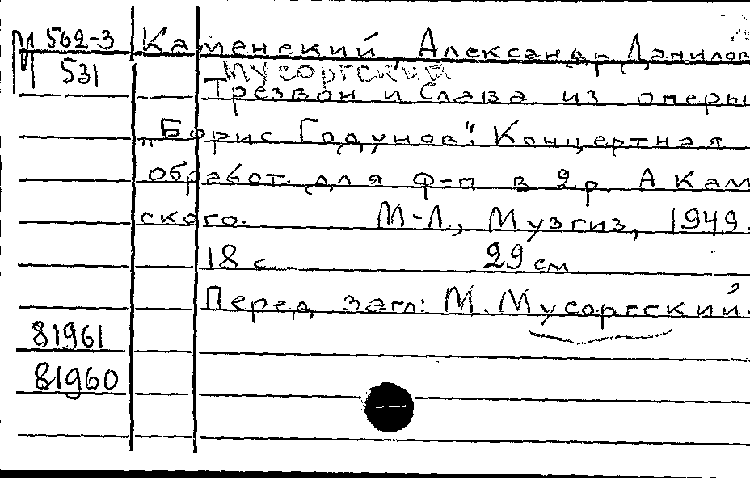 М 562-3 Каменский Александр Данилов
531 Мусоргский
Трезвон и Слава из оперы
„Борис Годунов". Концертная
обработ. для ф-п в 2 р. А Кам
ского. М-Л., Музгиз, 1949.
18 с 29 см
Перед загл: М. Мусоргский.
81961
81960